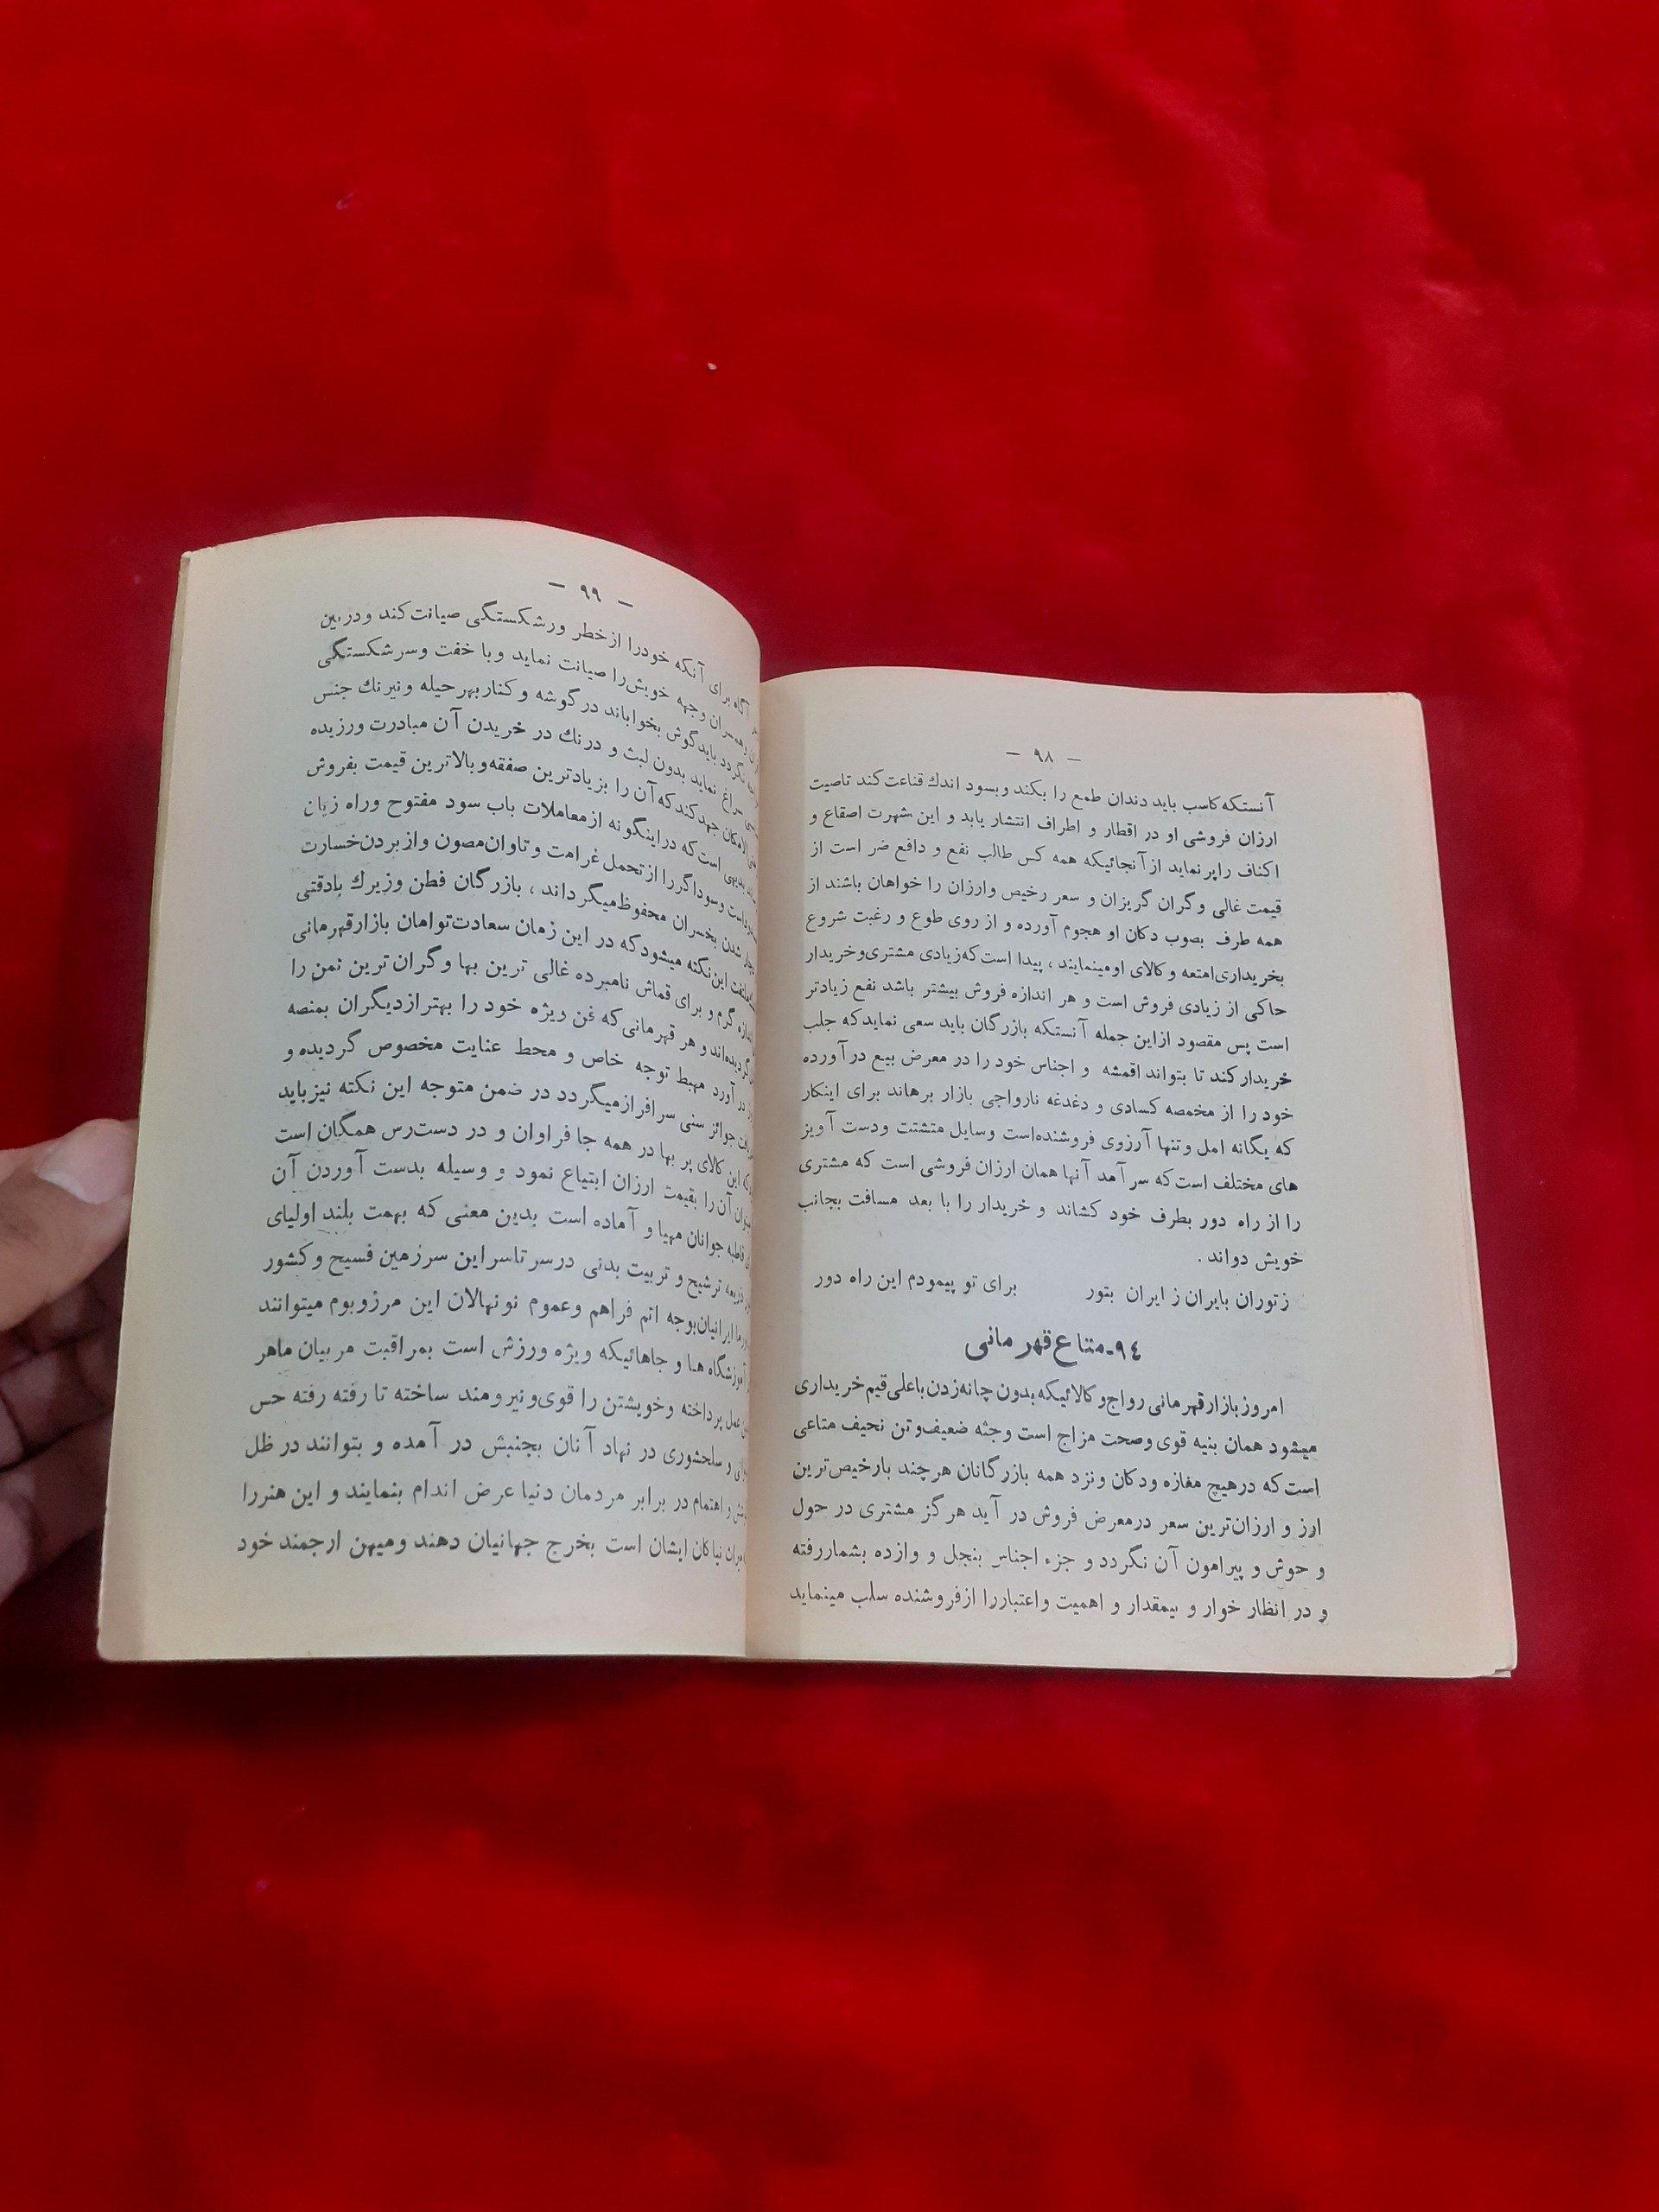 — ۹۸ —
آنستکه کاسب باید دندان طمع را بکند وبسود اندك قناعت کند تاصیت
ارزان فروشی او در اقطار و اطراف انتشار یابد و این شهرت اصقاع و
اکناف راپر نماید از آنجائیکه همه کس طالب نفع و دافع ضر است از
قیمت غالی وگران گریزان و سعر رخیص وارزان را خواهان باشند از
همه طرف بصوب دکان او هجوم آورده و از روی طوع و رغبت شروع
بخریداری امتعه وکالای اومینمایند ، پیدا است که زیادی مشتری وخریدار
حاکی از زیادی فروش است و هر اندازه فروش بیشتر باشد نفع زیادتر
است پس مقصود ازاین جمله آنستکه بازرگان باید سعی نماید که جلب
خریدار کند تا بتواند اقمشه و اجناس خود را در معرض بیع در آورده
خود را از مخمصه کسادی و دغدغه نارواجی بازار برهاند برای اینکار
که یگانه امل وتنها آرزوی فروشنده است وسایل متشتت ودست آویز
های مختلف است که سر آمد آنها همان ارزان فروشی است که مشتری
را از راه دور بطرف خود کشاند و خریدار را با بعد مسافت بجانب
خویش دواند .
زتوران بایران ز ایران بتور برای تو پیمودم این راه دور
۹٤-متاع قهرمانی
امروز بازار قهرمانی رواج وکالائیکه بدون چانه زدن باعلی قیم خریداری
میشود همان بنیه قوی وصحت مزاج است وجثه ضعیف وتن نحیف متاعی
است که درهیچ مغازه ودکان ونزد همه بازرگانان هرچند بارخیص ترین
ارز و ارزان ترین سعر درمعرض فروش در آید هرگز مشتری در حول
و حوش و پیرامون آن نگردد و جزء اجناس بنجل و وازده بشماررفته
و در انظار خوار و بیمقدار و اهمیت واعتباررا ازفروشنده سلب مینماید
— ۹۹ —
آگاه برای آنکه خودرا ازخطر ورشکستگی صیانت کند ودربین
وهمسران وجهه خویش را صیانت نماید وبا خفت وسرشکستگی
نگردد باید گوش بخواباند در گوشه و کنار بهر حیله ونیرنك جنس
سراغ نماید بدون لبث و درنك در خریدن آن مبادرت ورزیده
الامکان جهد کند که آن را بزیادترین صفقه وبالاترین قیمت بفروش
بدیهی است که دراینگونه ازمعاملات باب سود مفتوح وراه زیان
وسوداگررا از تحمل غرامت وتاوان مصون وازبردن خسارت
شدن بخسران محفوظ میگرداند ، بازرگان فطن وزیرك بادقتی
این نکته میشود که در این زمان سعادت توامان بازار قهرمانی
گرم و برای قماش نامبرده غالی ترین بها وگران ترین ثمن را
و هر قهرمانی که فن ریژه خود را بهتر ازدیگران بمنصه
در آورد مهبط توجه خاص و محط عنایت مخصوص گردیده و
جوائز سنی سرافرازمیگردد در ضمن متوجه این نکته نیزباید
این کالای پر بها در همه جا فراوان و در دست رس همگان است
آن را بقیمت ارزان ابتیاع نمود و وسیله بدست آوردن آن
قاطبه جوانان مهیا و آماده است بدین معنی که بهمت بلند اولیای
ترشیح و تربیت بدنی درسر تاسر این سرزمین فسیح وکشور
ایرانیان بوجه اتم فراهم وعموم نونهالان این مرزوبوم میتوانند
آموزشگاه ها و جاهائیکه ویژه ورزش است بمراقبت مربیان ماهر
عمل پرداخته وخویشتن را قوی ونیرومند ساخته تا رفته رفته حس
و سلحشوری در نهاد آنان بجنبش در آمده و بتوانند در ظل
و اهتمام در برابر مردمان دنیا عرض اندام بنمایند و این هنررا
نیاکان ایشان است بخرج جهانیان دهند ومیهن ارجمند خود